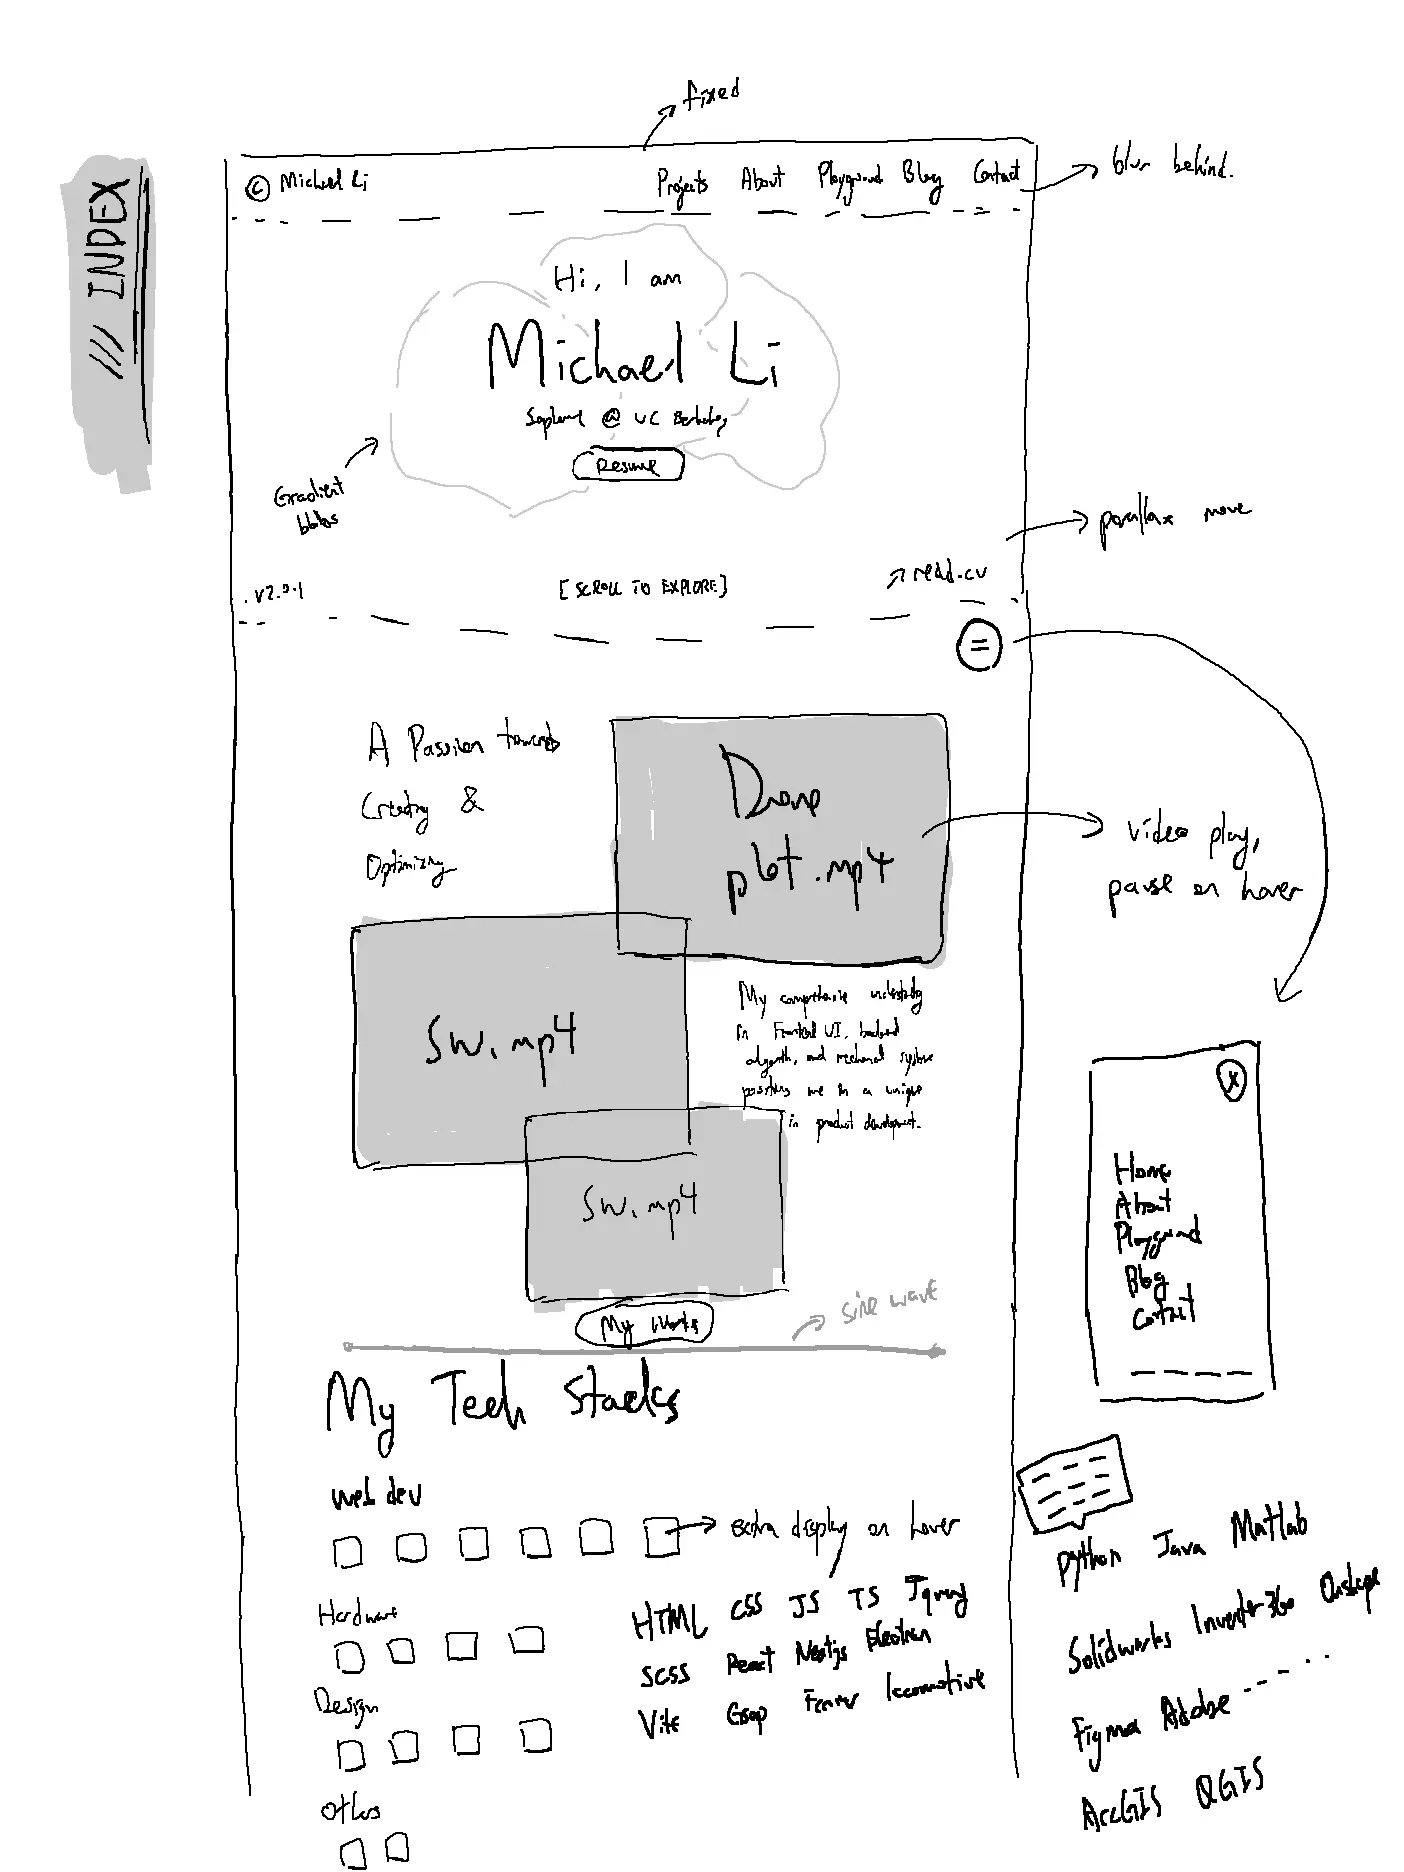 fixed
/// INDEX
© Michael Li Projects About Playground Blog Contact
blur behind.
Hi, I am
Michael Li
@ UC Berkeley
Resume
Gradient
blobs
parallax move
v2.0.1 [SCROLL TO EXPLORE] read.cv
=
A Passion towards
Creating &
Optimizing
Drone
plot.mp4
video play,
pause on hover
SW.mp4
My comprehensive understanding
in Frontend UI, backend
algorithm, and mechanical system
positions me in a unique
in product development.
SW.mp4
My Works
sine wave
X
Home
About
Playground
Blog
Contact
My Tech Stacks
web dev
extra display on hover
Hardware
Design
Others
HTML CSS JS TS Jquery
SCSS React Nextjs Electron
Vite Gsap Framer locomotive
python Java Matlab
Solidworks Onshape
Figma Adobe -----...
ArcGIS QGIS